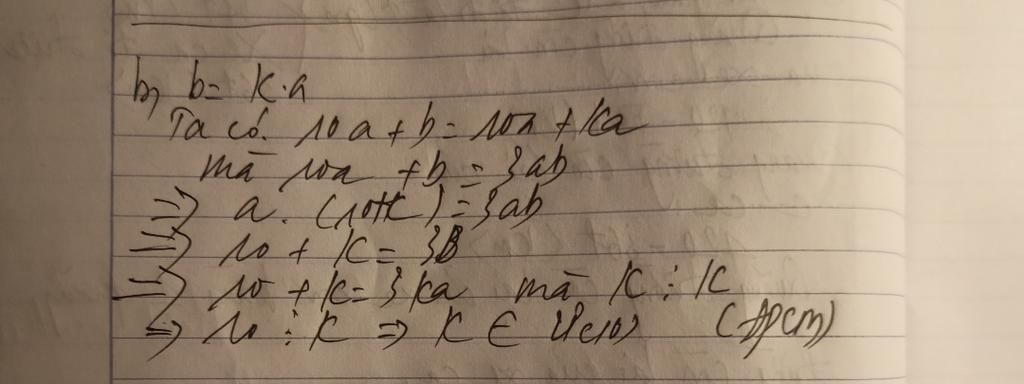 b, b = k.a
Ta có. 10a + b = 10a + ka
mà 10a + b = 3ab
=> a. (10+k) = 3ab
=> 10 + k = 3B
=> 10 + k = 3ka mà k ⋮ k
=> 10 ⋮ k => k ∈ Ư(10) (đpcm)